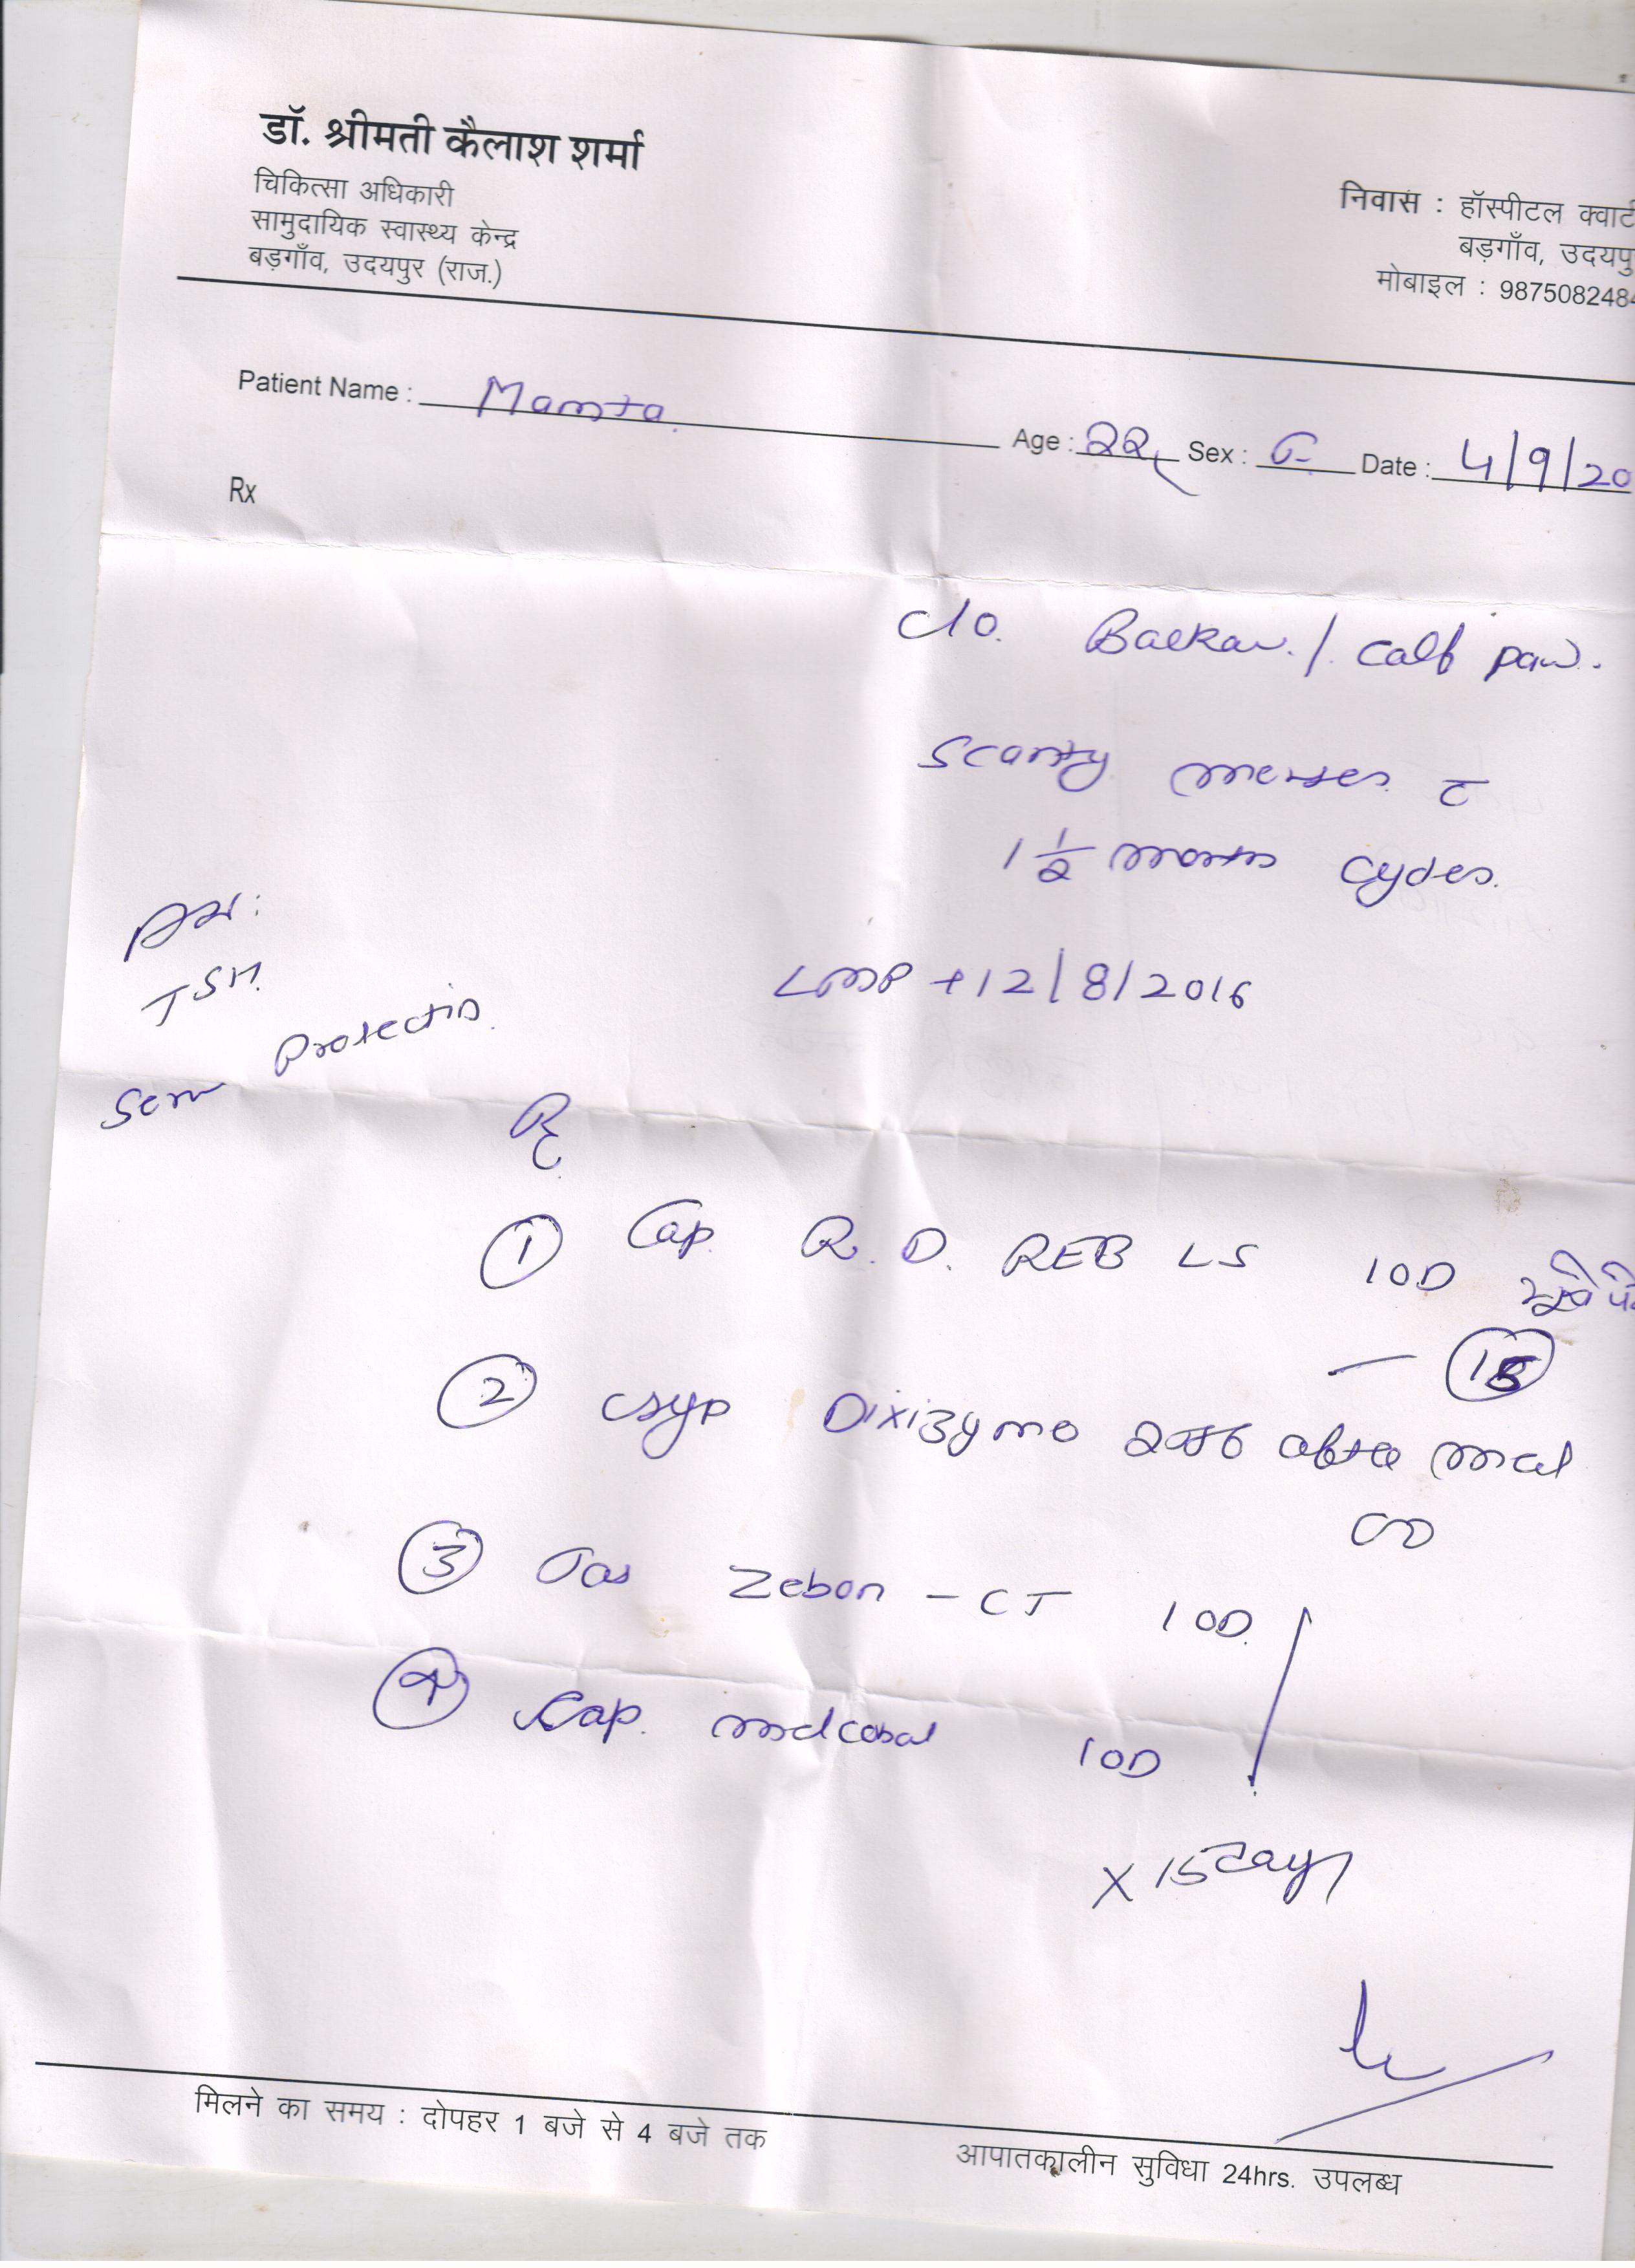 डॉ. श्रीमती कैलाश शर्मा
चिकित्सा अधिकारी
सामुदायिक स्वास्थ्य केन्द्र
बड़गाँव, उदयपुर (राज.)
निवास : हॉस्पीटल क्वार्ट
बड़गाँव, उदयपु
मोबाइल : 987508248
Patient Name : Mamta
Age : 22 Sex : F Date : 4/9/20
Rx
C/O. / calf pain.
Scanty menses c̄
1 1/2 month cycles.
LMP + 12/8/2016
Adv:
TSH
Serum Prolactin
Rx
① Cap R.D. REB LS 1OD
— 15
② Syp Dixizyme 2tsf after meal
③ Tab Zebon - CT 1OD
④ Cap. 1OD
x 15 days
मिलने का समय : दोपहर 1 बजे से 4 बजे तक
आपातकालीन सुविधा 24hrs. उपलब्ध